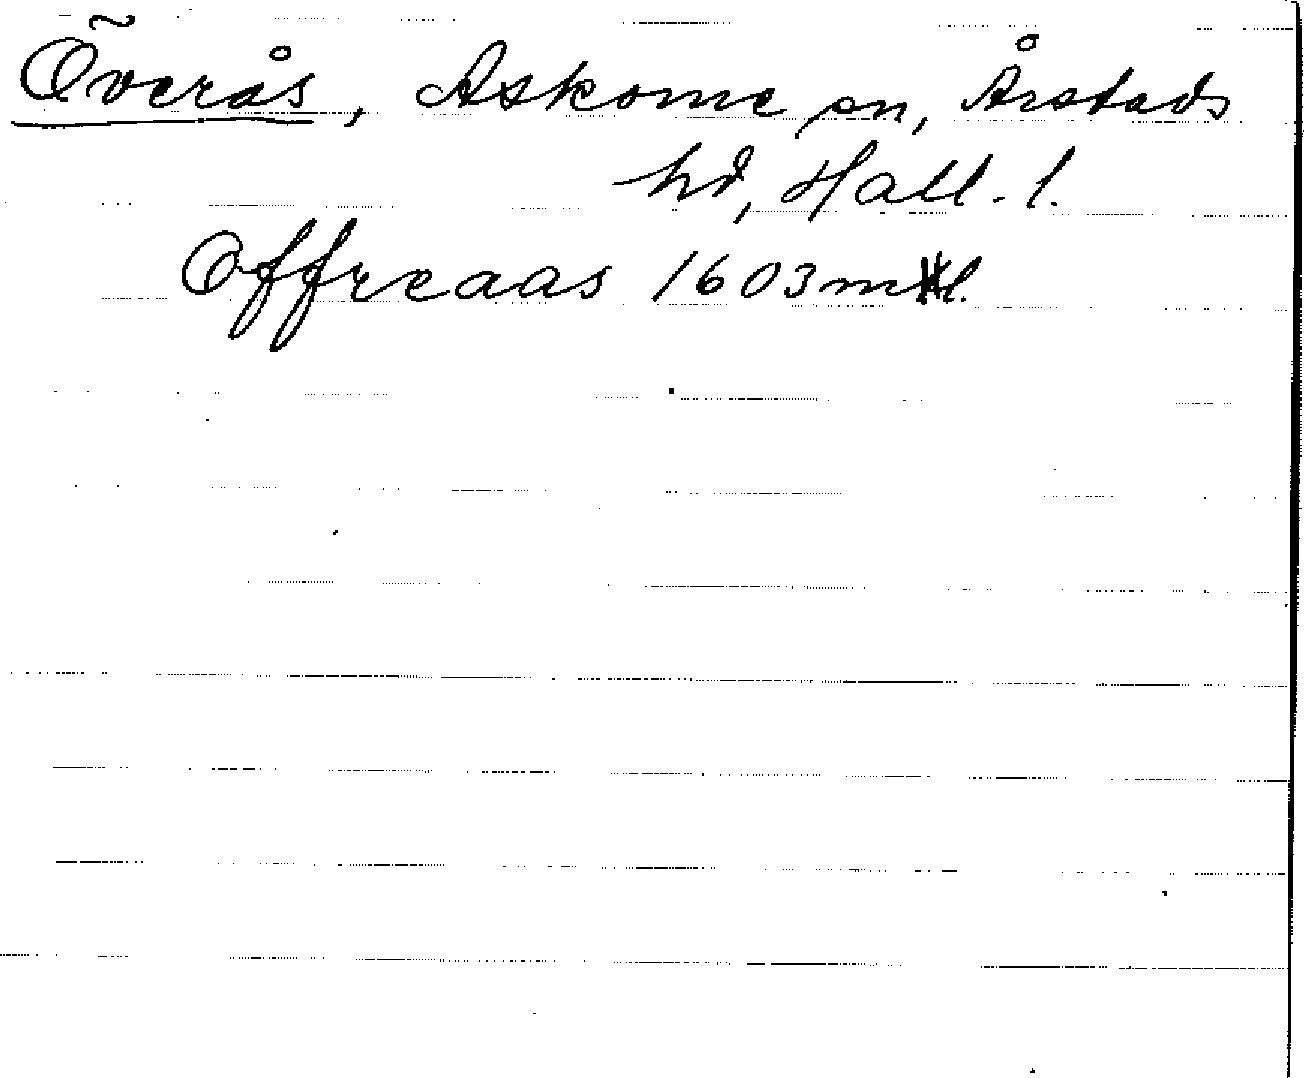 Överås, Askome sn, Årstads
hd, Hall. l.
Offreaas 1603 ml.